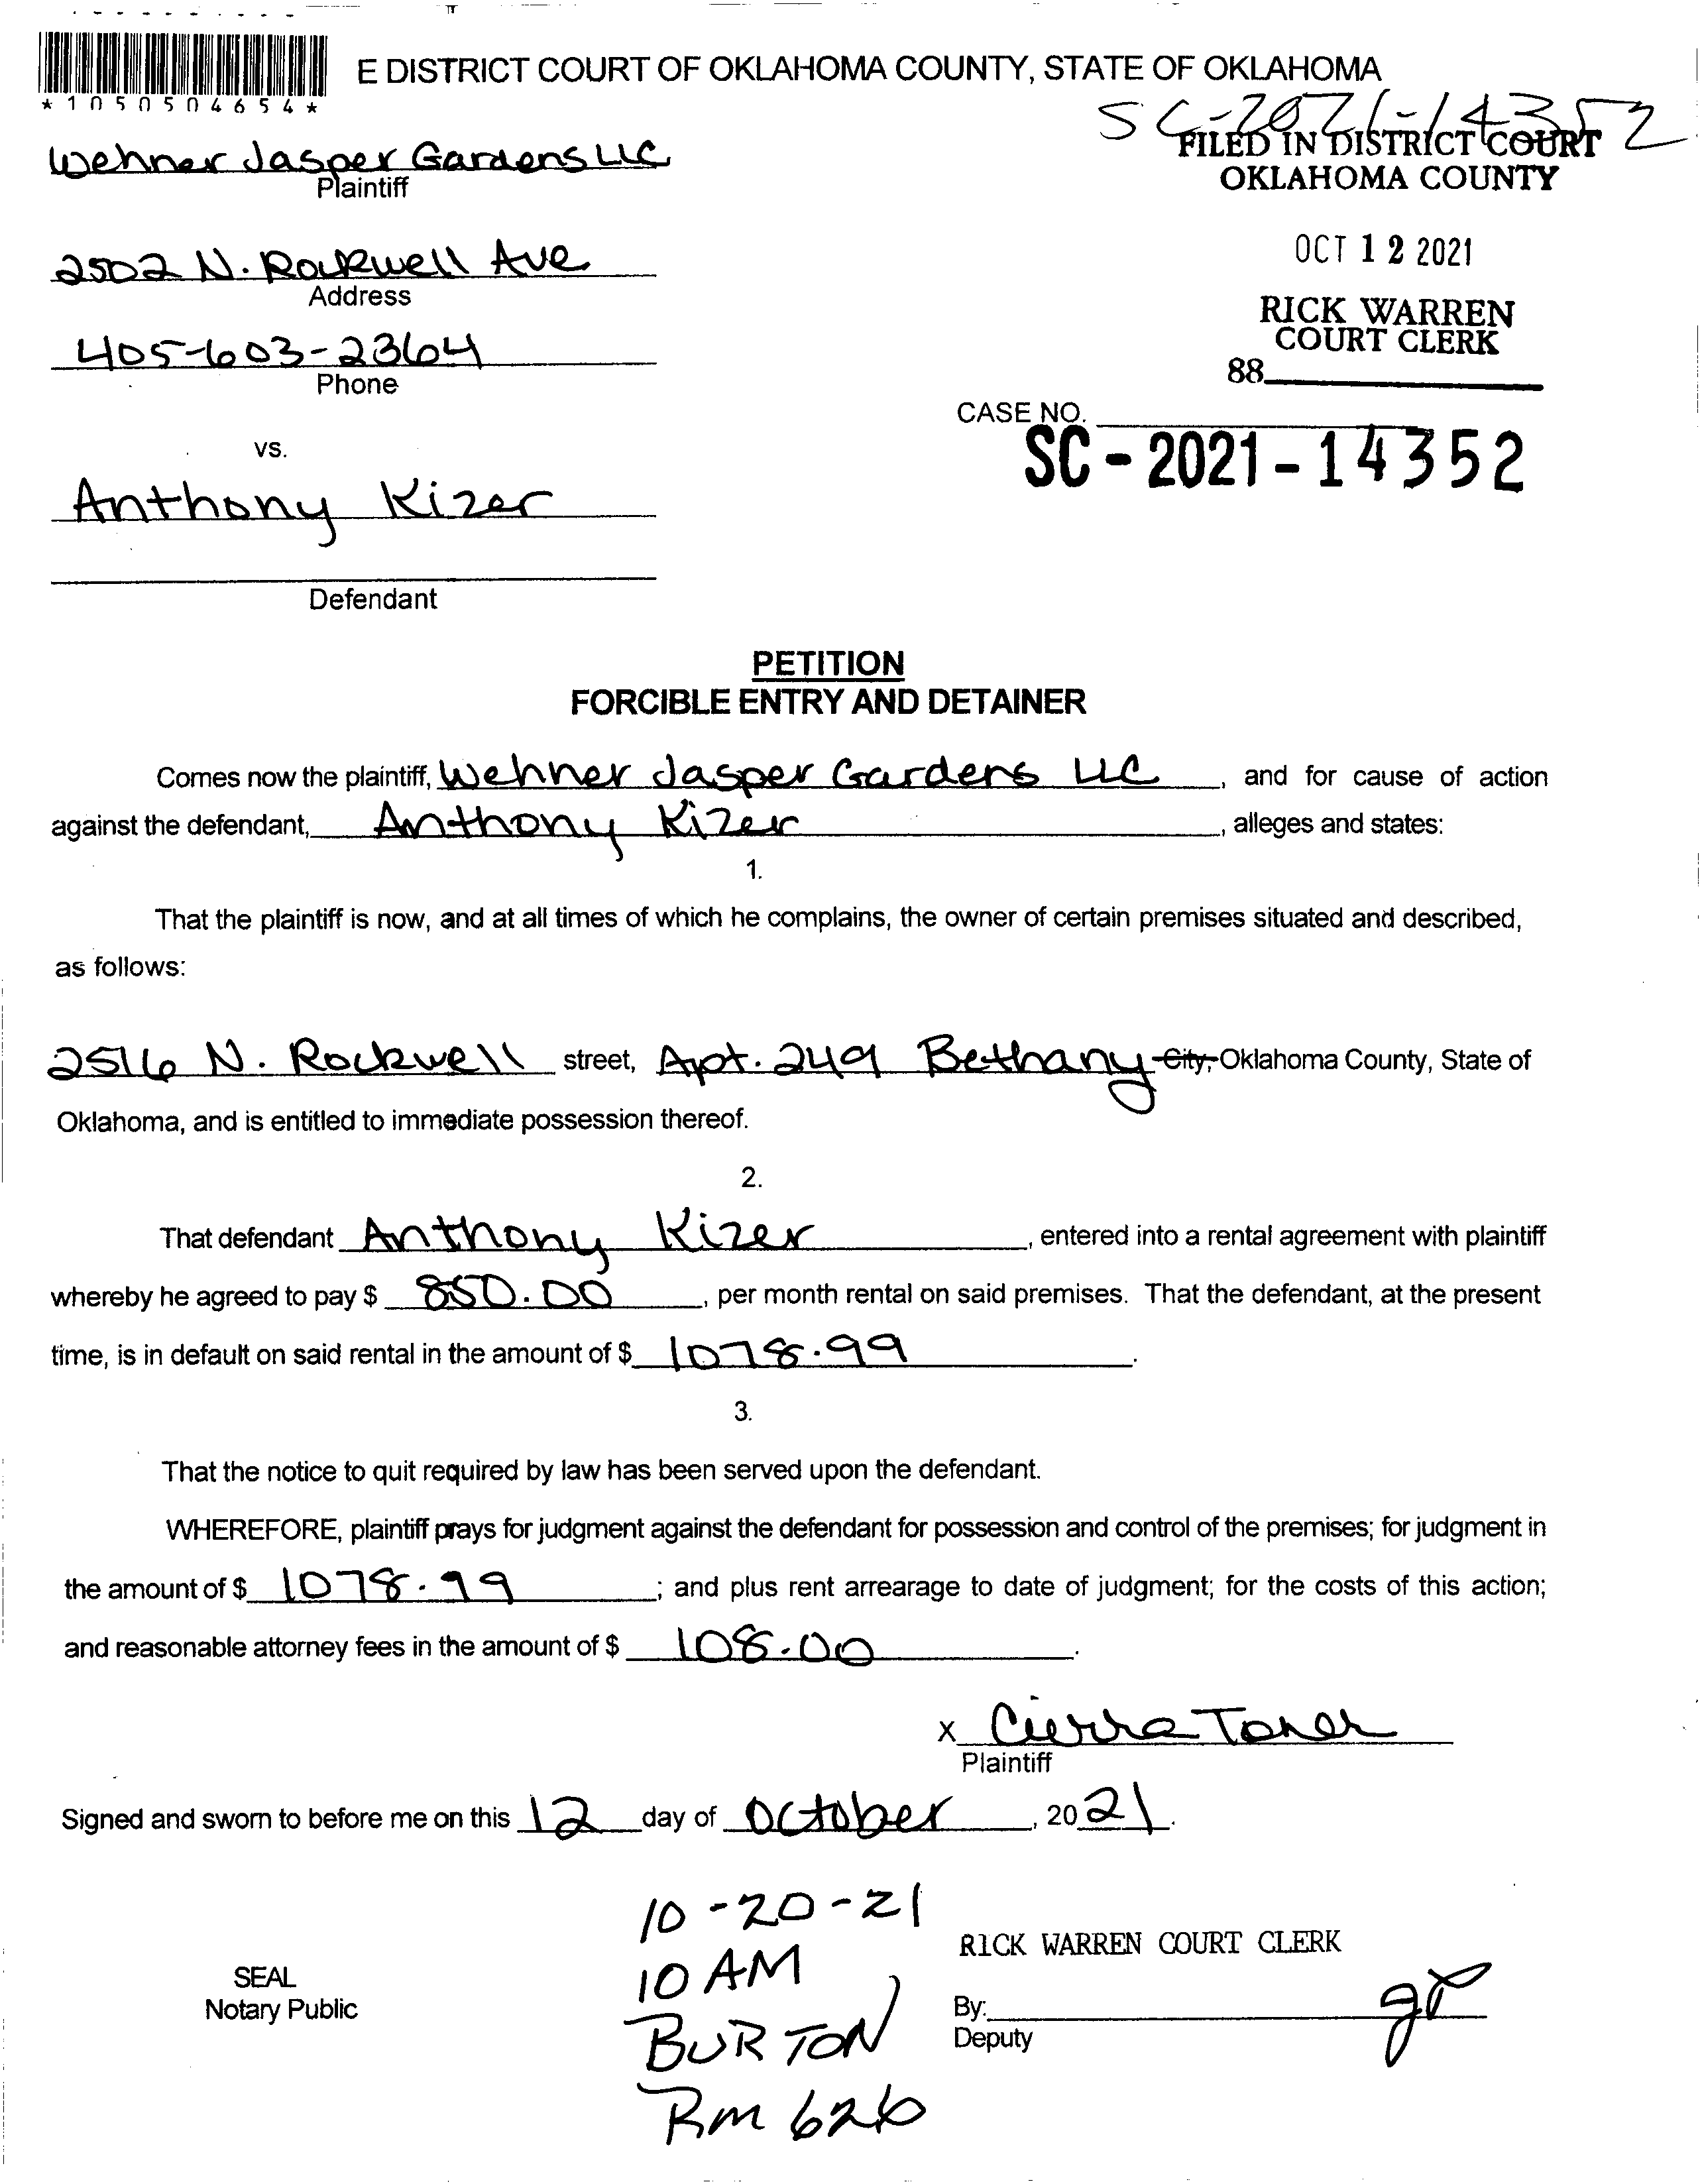 E DISTRICT COURT OF OKLAHOMA COUNTY, STATE OF OKLAHOMA
*1050504654*
SC-2021-14352
Wehner Jasper Gardens LLC
Plaintiff
FILED IN DISTRICT COURT
OKLAHOMA COUNTY
2502 N. Rockwell Ave
Address
OCT 12 2021
405-603-2364
Phone
RICK WARREN
COURT CLERK
88
CASE NO.
SC-2021-14352
vs.
Anthony Kizer
Defendant
PETITION
FORCIBLE ENTRY AND DETAINER
Comes now the plaintiff, Wehner Jasper Gardens LLC, and for cause of action
against the defendant, Anthony Kizer, alleges and states:
1.
That the plaintiff is now, and at all times of which he complains, the owner of certain premises situated and described,
as follows:
2516 N. Rockwell street, Apt. 249 Bethany City, Oklahoma County, State of
Oklahoma, and is entitled to immediate possession thereof.
2.
That defendant Anthony Kizer, entered into a rental agreement with plaintiff
whereby he agreed to pay $ 850.00, per month rental on said premises. That the defendant, at the present
time, is in default on said rental in the amount of $ 1078.99.
3.
That the notice to quit required by law has been served upon the defendant.
WHEREFORE, plaintiff prays for judgment against the defendant for possession and control of the premises; for judgment in
the amount of $ 1078.99; and plus rent arrearage to date of judgment; for the costs of this action;
and reasonable attorney fees in the amount of $ 108.00.
X Cierra Toner
Plaintiff
Signed and sworn to before me on this 12 day of October, 2021.
10-20-21
10 AM
BURTON
Rm 626
SEAL
Notary Public
RICK WARREN COURT CLERK
By:
Deputy